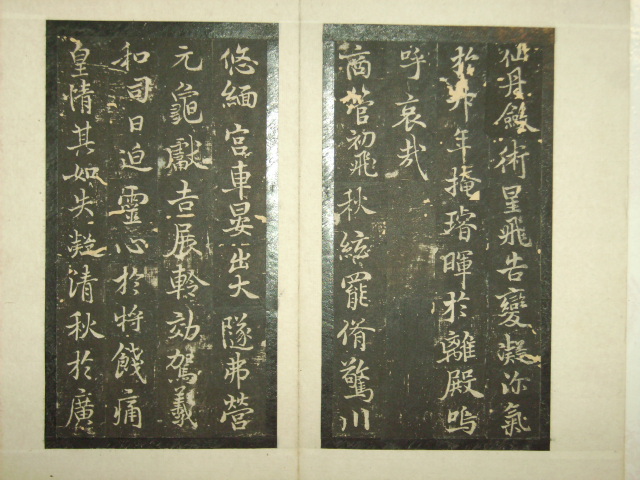 仙丹斂術星飛告變凝沴氣
於丱年掩璿暉於離殿嗚
呼哀哉
商管初飛秋紘罷脩驚川
悠緬宮車晏出大隧弗營
元龜獻吉展軨効駕羲
和司日迫靈心於將餞痛
皇情其如失凝清秋於廣